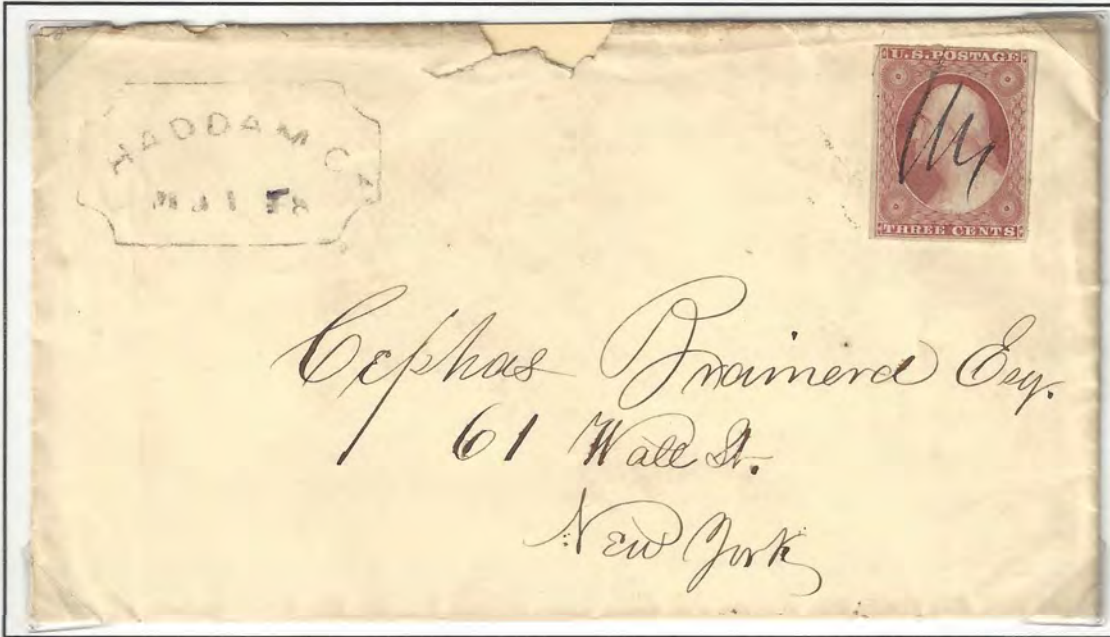 HADDAM C
U.S. POSTAGE
THREE CENTS
Cephas Brainerd Esq.
61 Wall St.
New York